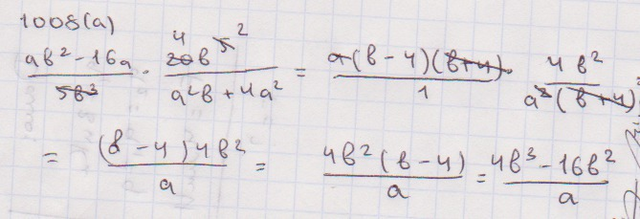 1008(a)
(ab² - 16a)/(5b³) · (4 20b⁵ ²)/(a²b + 4a²) = (a(b - 4)(b+4))/1 · (4b²)/(a²(b+4)) =
= ((b - 4)4b²)/a = (4b²(b - 4))/a = (4b³ - 16b²)/a